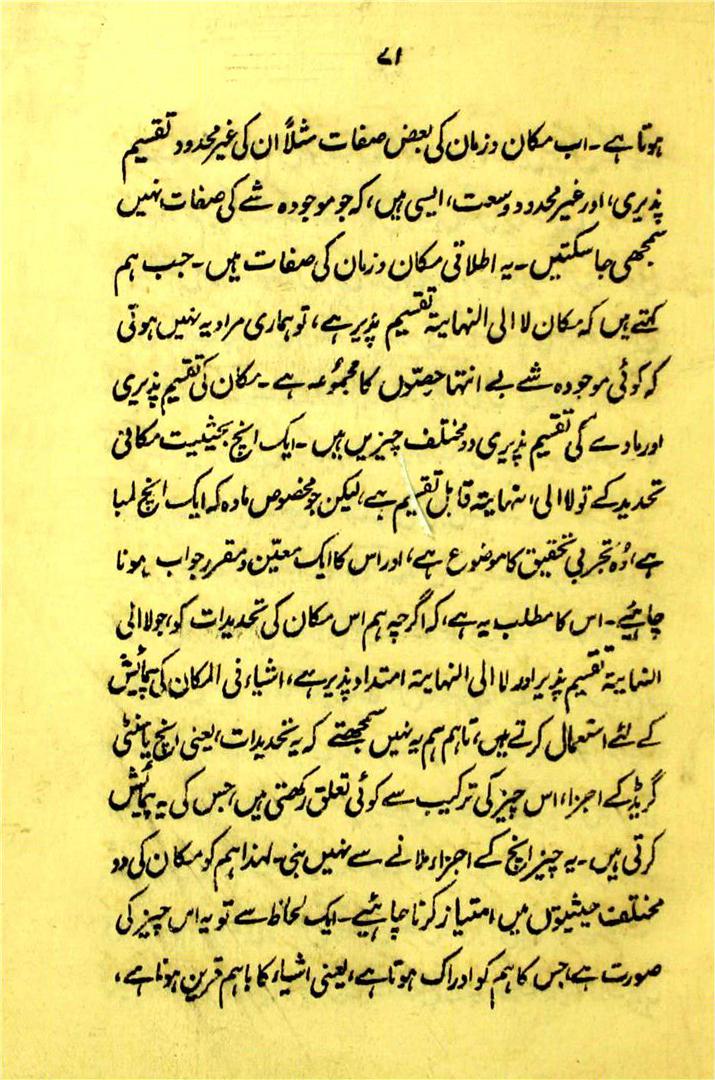 ۷۱
ہوتا ہے۔ اب مکان و زمان کی بعض صفات مثلاً ان کی غیر محدود تقسیم
پذیری، اور غیر محدود وسعت، ایسی ہیں، کہ جو موجودہ شے کی صفات نہیں
سمجھی جا سکتیں۔ یہ اطلاقی مکان و زمان کی صفات ہیں۔ جب ہم
کہتے ہیں کہ مکان لا الی النہایۃ تقسیم پذیر ہے، تو ہماری مراد یہ نہیں ہوتی
کہ کوئی موجودہ شے بے انتہا حصّوں کا مجموُعہ ہے۔ مکان کی تقسیم پذیری
اور مادے کی تقسیم پذیری دو مختلف چیزیں ہیں۔ ایک انچ بحیثیت مکانی
تحدید کے تو لا الی النہایتہ قابل تقسیم ہے، لیکن جو مخصوص مادہ کہ ایک انچ لمبا
ہے، وُہ تجربی تحقیق کا موضوع ہے، اور اس کا ایک معیّن و مقرر جواب ہونا
چاہئیے۔ اس کا مطلب یہ ہے، کہ اگرچہ ہم اس مکان کی تحدیدات کو، جو لا الی
النہایتہ تقسیم پذیر اور لا الی النہایتہ امتداد پذیر ہے، اشیاء فی المکان کی پیمائیش
کے لئے استعمال کرتے ہیں، تاہم ہم یہ نہیں سمجھتے کہ یہ تحدیدات، یعنی انچ یا سنٹی
گریڈ کے اجزاء، اس چیز کی ترکیب سے کوئی تعلق رکھتی ہیں، جس کی یہ پیمائیش
کرتی ہیں۔ یہ چیز انچ کے اجزاء ملانے سے نہیں بنی۔ لہٰذا ہم کو مکان کی دو
مختلف حیثیتوں میں امتیاز کرنا چاہئیے۔ ایک لحاظ سے تو یہ اس چیز کی
صورت ہے، جس کا ہم کو ادراک ہوتا ہے، یعنی اشیاء کا باہم قرین ہونا ہے،